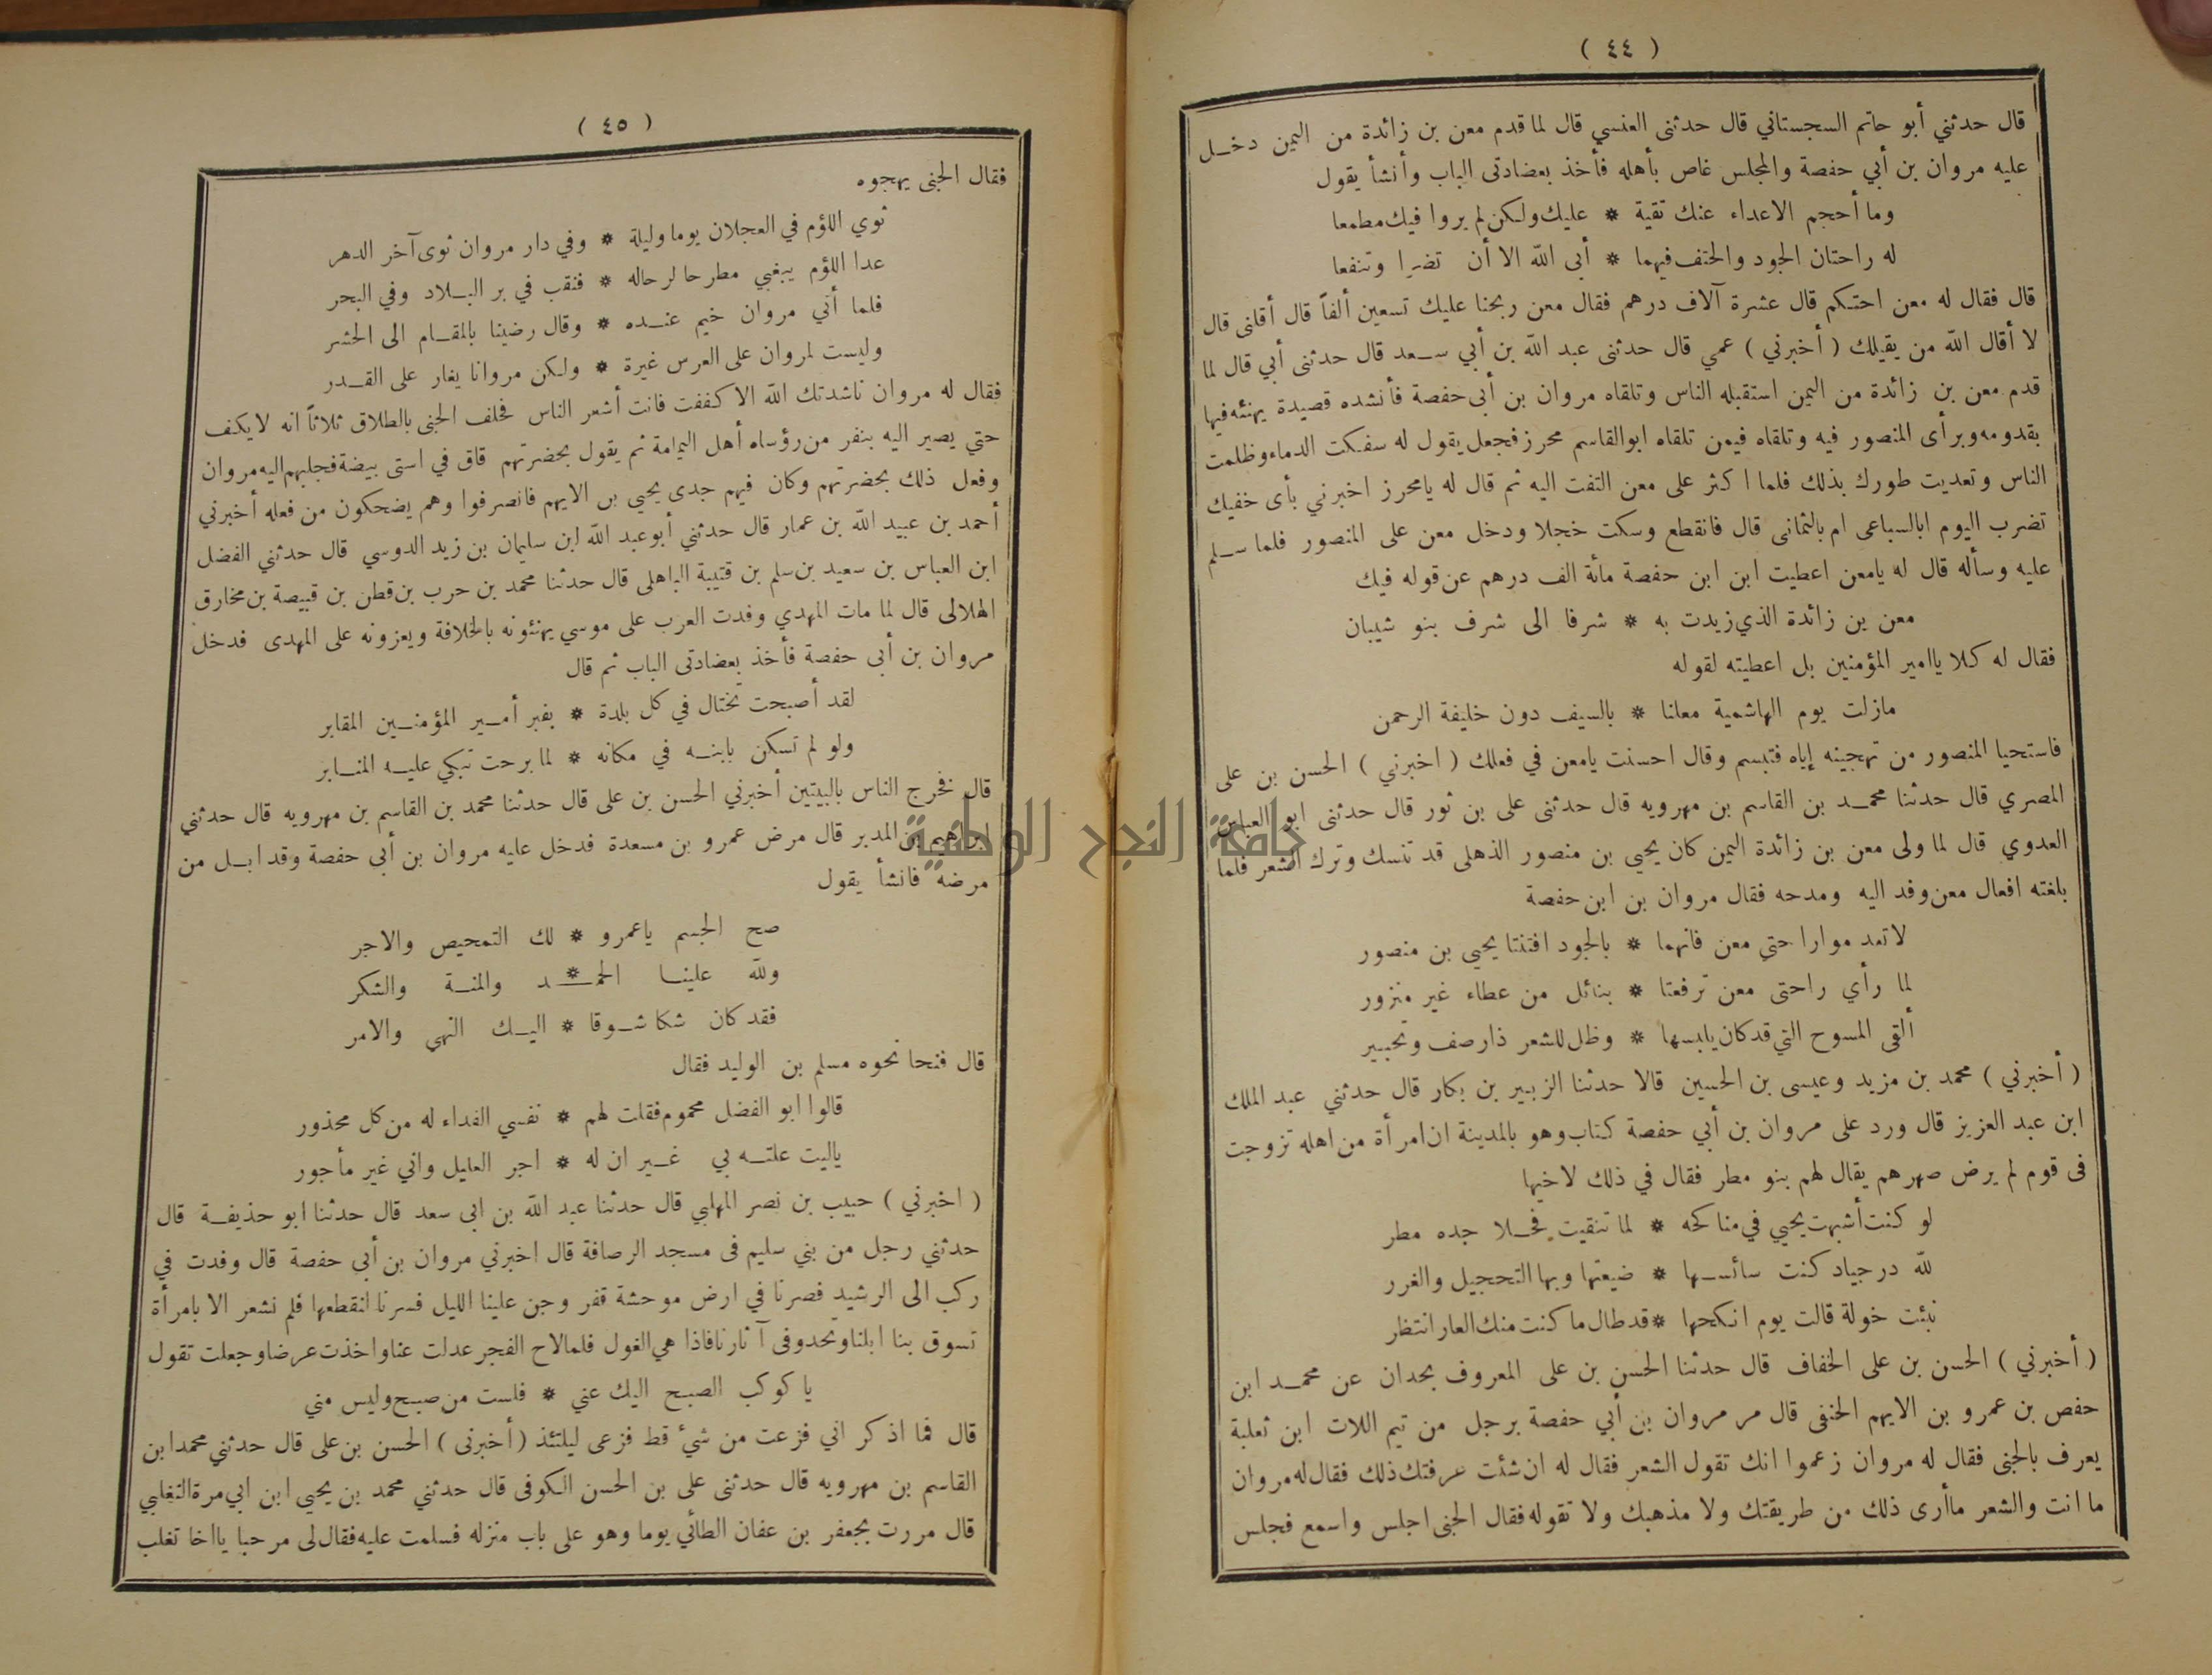 ( ٤٤ )
قال حدثني أبو حاتم السجستاني قال حدثنى العنسي قال لما قدم معن بن زائدة من اليمن دخل
عليه مروان بن أبي حفصة والمجلس غاص بأهله فأخذ بعضادتى الباب وأنشأ يقول
وما أحجم الاعداء عنك تقية * عليك ولكن لم يروا فيك مطمعا
له راحتان الجود والحتف فيهما * أبى الله الا أن تضرا وتنفعا
قال فقال له معن احتكم قال عشرة آلاف درهم فقال معن ربحنا عليك تسعين ألفاً قال أقلنى قال
لا أقال الله من يقيلك ( أخبرني ) عمي قال حدثنى عبد الله بن أبي سعد قال حدثنى أبي قال لما
قدم معن بن زائدة من اليمن استقبله الناس وتلقاه مروان بن أبى حفصة فأنشده قصيدة يهنئه فيها
بقدومه وبرأى المنصور فيه وتلقاه فيمن تلقاه ابو القاسم محرز فجعل يقول له سفكت الدماء وظلمت
الناس وتعديت طورك بذلك فلما اكثر على معن التفت اليه ثم قال له يامحرز اخبرني بأى خفيك
تضرب اليوم ابالسباعى ام بالثمانى قال فانقطع وسكت خجلا ودخل معن على المنصور فلما سلم
عليه وسأله قال له يامعن اعطيت ابن ابن حفصة مائة الف درهم عن قوله فيك
معن بن زائدة الذي زيدت به * شرفا الى شرف بنو شيبان
فقال له كلا ياامير المؤمنين بل اعطيته لقوله
مازلت يوم الهاشمية معلنا * بالسيف دون خليفة الرحمن
فاستحيا المنصور من تهجينه إياه فتبسم وقال احسنت يامعن في فعلك ( اخبرني ) الحسن بن على
المصري قال حدثنا محمد بن القاسم بن مهرويه قال حدثنى على بن ثور قال حدثنى ابو العباس
العدوي قال لما ولى معن بن زائدة اليمن كان يحيى بن منصور الذهلى قد تنسك وترك الشعر فلما
بلغته افعال معن وفد اليه ومدحه فقال مروان بن ابن حفصة
لاتعد موارا حتي معن فانهما * بالجود افتنتا يحيى بن منصور
لما رأي راحتى معن ترفعتا * بنائل من عطاء غير منزور
ألقى المسوح التي قد كان يلبسها * وظل للشعر ذارصف وتحبير
( أخبرني ) محمد بن مزيد وعيسى بن الحسين قالا حدثنا الزبير بن بكار قال حدثني عبد الملك
ابن عبد العزيز قال ورد على مروان بن أبي حفصة كتاب وهو بالمدينة ان امرأة من اهله تزوجت
فى قوم لم يرض صهرهم يقال لهم بنو مطر فقال في ذلك لاخيها
لو كنت أشبهت يحيي في مناكحه * لما تنقيت فحلا جده مطر
لله در جياد كنت سائسها * ضيعتها وبها التحجيل والغرر
نبئت خولة قالت يوم انكحها * قد طال ما كنت منك العار انتظر
( أخبرني ) الحسن بن على الخفاف قال حدثنا الحسن بن على المعروف بحدان عن محمد ابن
حفص بن عمرو بن الايهم الحنفى قال مر مروان بن أبي حفصة برجل من تيم اللات ابن ثعلبة
يعرف بالجنى فقال له مروان زعموا انك تقول الشعر فقال له ان شئت عرفتك ذلك فقال له مروان
ما انت والشعر ماأرى ذلك من طريقتك ولا مذهبك ولا تقوله فقال الجنى اجلس واسمع فجلس
( ٤٥ )
فقال الجنى يهجوه
ثوي اللؤم في العجلان يوما وليلة * وفي دار مروان ثوى آخر الدهر
عدا اللؤم يبغبي مطرحا لرحاله * فنقب في بر البلاد وفي البحر
فلما أتي مروان خيم عنده * وقال رضينا بالمقام الى الحشر
وليست لمروان على العرس غيرة * ولكن مروانا يغار على القدر
فقال له مروان ناشدتك الله الا كففت فانت أشعر الناس فحلف الجنى بالطلاق ثلاثاً انه لايكف
حتي يصير اليه بنفر من رؤساء أهل اليمامة ثم يقول بحضرتهم قاق في استى بيضة فجلبهم اليه مروان
وفعل ذلك بحضرتهم وكان فيهم جدى يحيي بن الايهم فانصرفوا وهم يضحكون من فعله أخبرني
أحمد بن عبيد الله بن عمار قال حدثني أبو عبد الله ابن سليمان بن زيد الدوسي قال حدثني الفضل
ابن العباس بن سعيد بن سلم بن قتيبة الباهلى قال حدثنا محمد بن حرب بن قطن بن قبيصة بن مخارق
الهلالى قال لما مات المهدي وفدت العرب على موسي يهنئونه بالخلافة ويعزونه على المهدى فدخل
مروان بن أبى حفصة فأخذ بعضادتى الباب ثم قال
لقد أصبحت تختال في كل بلدة * بقبر أمير المؤمنين المقابر
ولو لم تسكن بابنه في مكانه * لما برحت تبكي عليه المنابر
قال فخرج الناس بالبيتين أخبرني الحسن بن على قال حدثنا محمد بن القاسم بن مهرويه قال حدثني
ابراهيم بن المدبر قال مرض عمرو بن مسعدة فدخل عليه مروان بن أبي حفصة وقد ابل من
مرضه فانشأ يقول
صح الجسم ياعمرو * لك التمحيص والاجر
ولله علينا الحمد * والمنة والشكر
فقد كان شكا شوقا * اليك النهي والامر
قال فنحا نحوه مسلم بن الوليد فقال
قالوا ابو الفضل محموم فقلت لهم * نفسي الفداء له من كل محذور
ياليت علته بي غير ان له * اجر العليل واني غير مأجور
( اخبرني ) حبيب بن نصر المهلبي قال حدثنا عبد الله بن ابى سعد قال حدثنا ابو حذيفة قال
حدثني رجل من بني سليم فى مسجد الرصافة قال اخبرني مروان بن أبي حفصة قال وفدت في
ركب الى الرشيد فصرنا في ارض موحشة قفر وجن علينا الليل فسرنا لنقطعها فلم نشعر الا بامرأة
تسوق بنا ابلنا وتحدو فى آثارنا فاذا هي الغول فلما لاح الفجر عدلت عنا واخذت عرضا وجعلت تقول
يا كوكب الصبح اليك عني * فلست من صبح وليس مني
قال فما اذكر اني فزعت من شيء قط فزعى ليلتئذ ( أخبرنى ) الحسن بن على قال حدثني محمد ابن
القاسم بن مهرويه قال حدثنى على بن الحسن الكوفى قال حدثني محمد بن يحيى ابن ابي مرة التغلبي
قال مررت بجعفر بن عفان الطائي يوما وهو على باب منزله فسلمت عليه فقال لى مرحبا يااخا تغلب
جامعة النجاح الوطنية